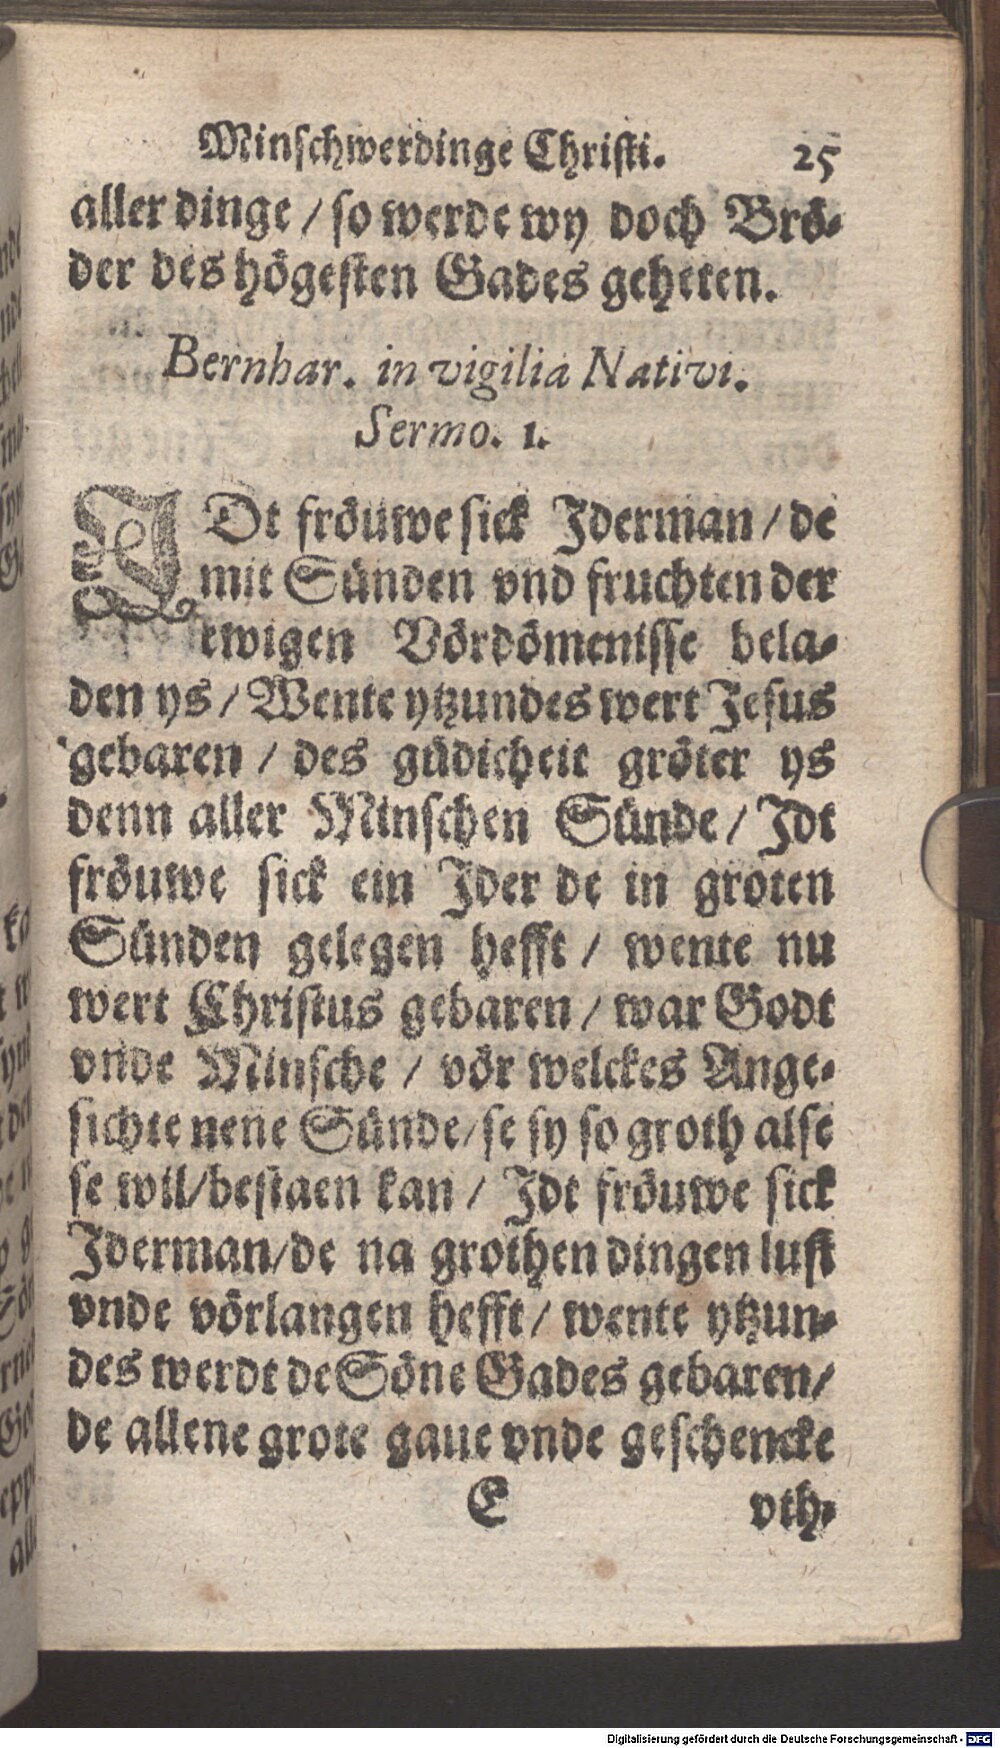 Minschwerdinge Christi. 25
aller dinge / so werde wy doch Brö-
der des högesten Gades geheten.
Bernhar. in vigilia Nativi.
Sermo. 1.
IDt fröuwe sick Jderman / de
mit Sünden vnd fruchten der
ewigen Vördömenisse bela-
den ys / Wente ytzundes wert Jesus
gebaren / des güdicheit gröter ys
denn aller Minschen Sünde / Jdt
fröuwe sick ein Jder de in groten
Sünden gelegen hefft / wente nu
wert Christus gebaren / war Godt
vnde Minsche / vör welckes Ange-
sichte nene Sünde / se sy so groth alse
se wil / bestaen kan / Jdt fröuwe sick
Jderman / de na grothen dingen lust
vnde vörlangen hefft / wente ytzun-
des werdt de Söne Gades gebaren /
de allene grote gaue vnde geschencke
E vth-
Digitalisierung gefördert durch die Deutsche Forschungsgemeinschaft - DFG